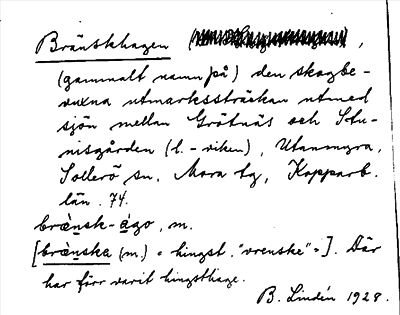 Bränskhagen (
(gammalt namn på) den skogbe-
vuxna utmarkssträckan utmed
sjön mellan Grötnäs och Stu-
nisgården (l. -viken), Utanmyra,
Sollerö sn, Mora tg, Kopparb.
län. 74.
brænsk-ágo, m.
[brænska (m.) = hingst, "vrenske"=]. Där
har förr varit hingsthage.
B. Lindén 1928.